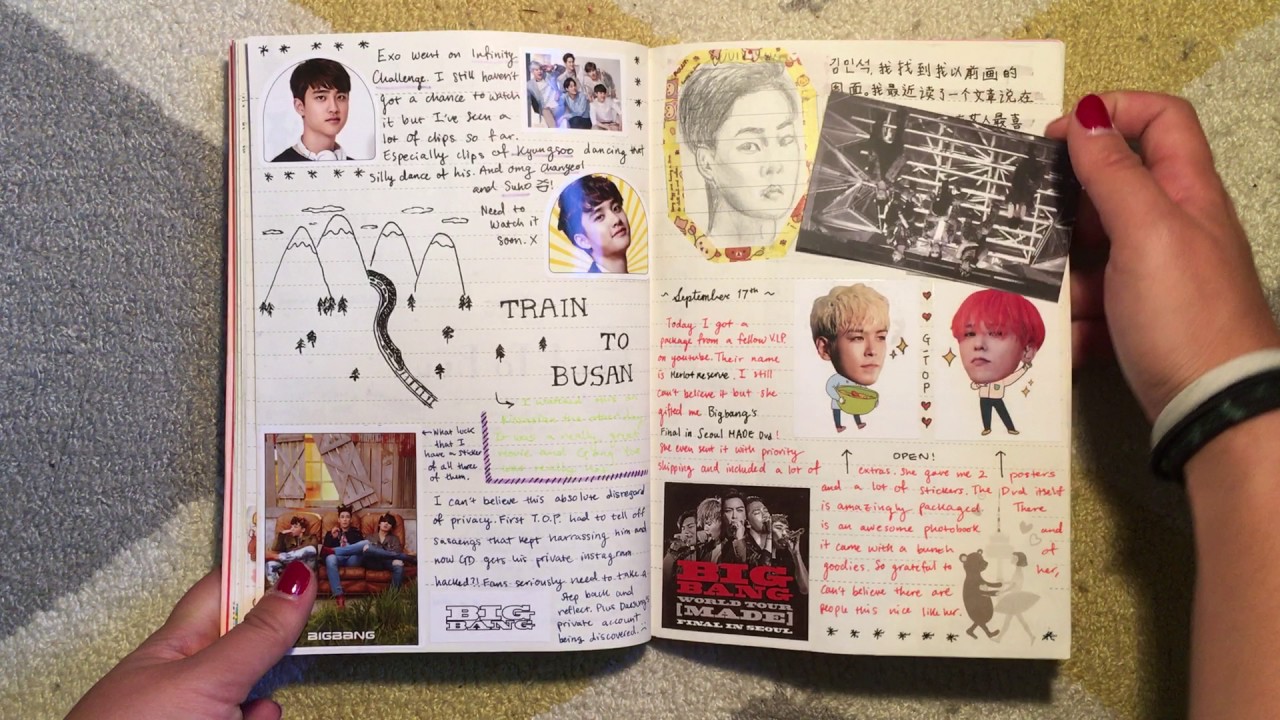 Exo went on Infinity
Challenge. I still haven't
got a chance to watch
it but I've seen a
lot of clips so far.
Especially clips of Kyungsoo dancing that
silly dance of his. And omg Chanyeol
and Suho
Need to
watch it
soon. X
TRAIN
TO
BUSAN
← What luck
that I
have a sticker
of all three
of them.
I can't believe this absolute disregard
of privacy. First T.O.P. had to tell off
sasaengs that kept harrassing him and
now GD gets his private instagram
hacked?! Fans seriously need to take a
step back and
reflect. Plus Daesung's
private account
being discovered.
BIGBANG
BIG
BANG
김인석, 我找到我以前画的
周面。我最近读了一个文章说,在
~ September 17th ~
Today I got a
package from a fellow V.I.P.
on youtube. Their name
is Merlot Reserve. I still
can't believe it but she
gifted me Bigbang's
Final in Seoul MADE Dvd!
She even sent it with priority
shipping and included a lot of
G
T
O
P
OPEN!
extras. She gave me 2 posters
and a lot of stickers. The Dvd itself
is amazingly packaged There
is an awesome photobook and
it came with a bunch of
goodies. So grateful to her,
can't believe there are
people this nice like her.
BIG
BANG
WORLD TOUR
[MADE]
FINAL IN SEOUL